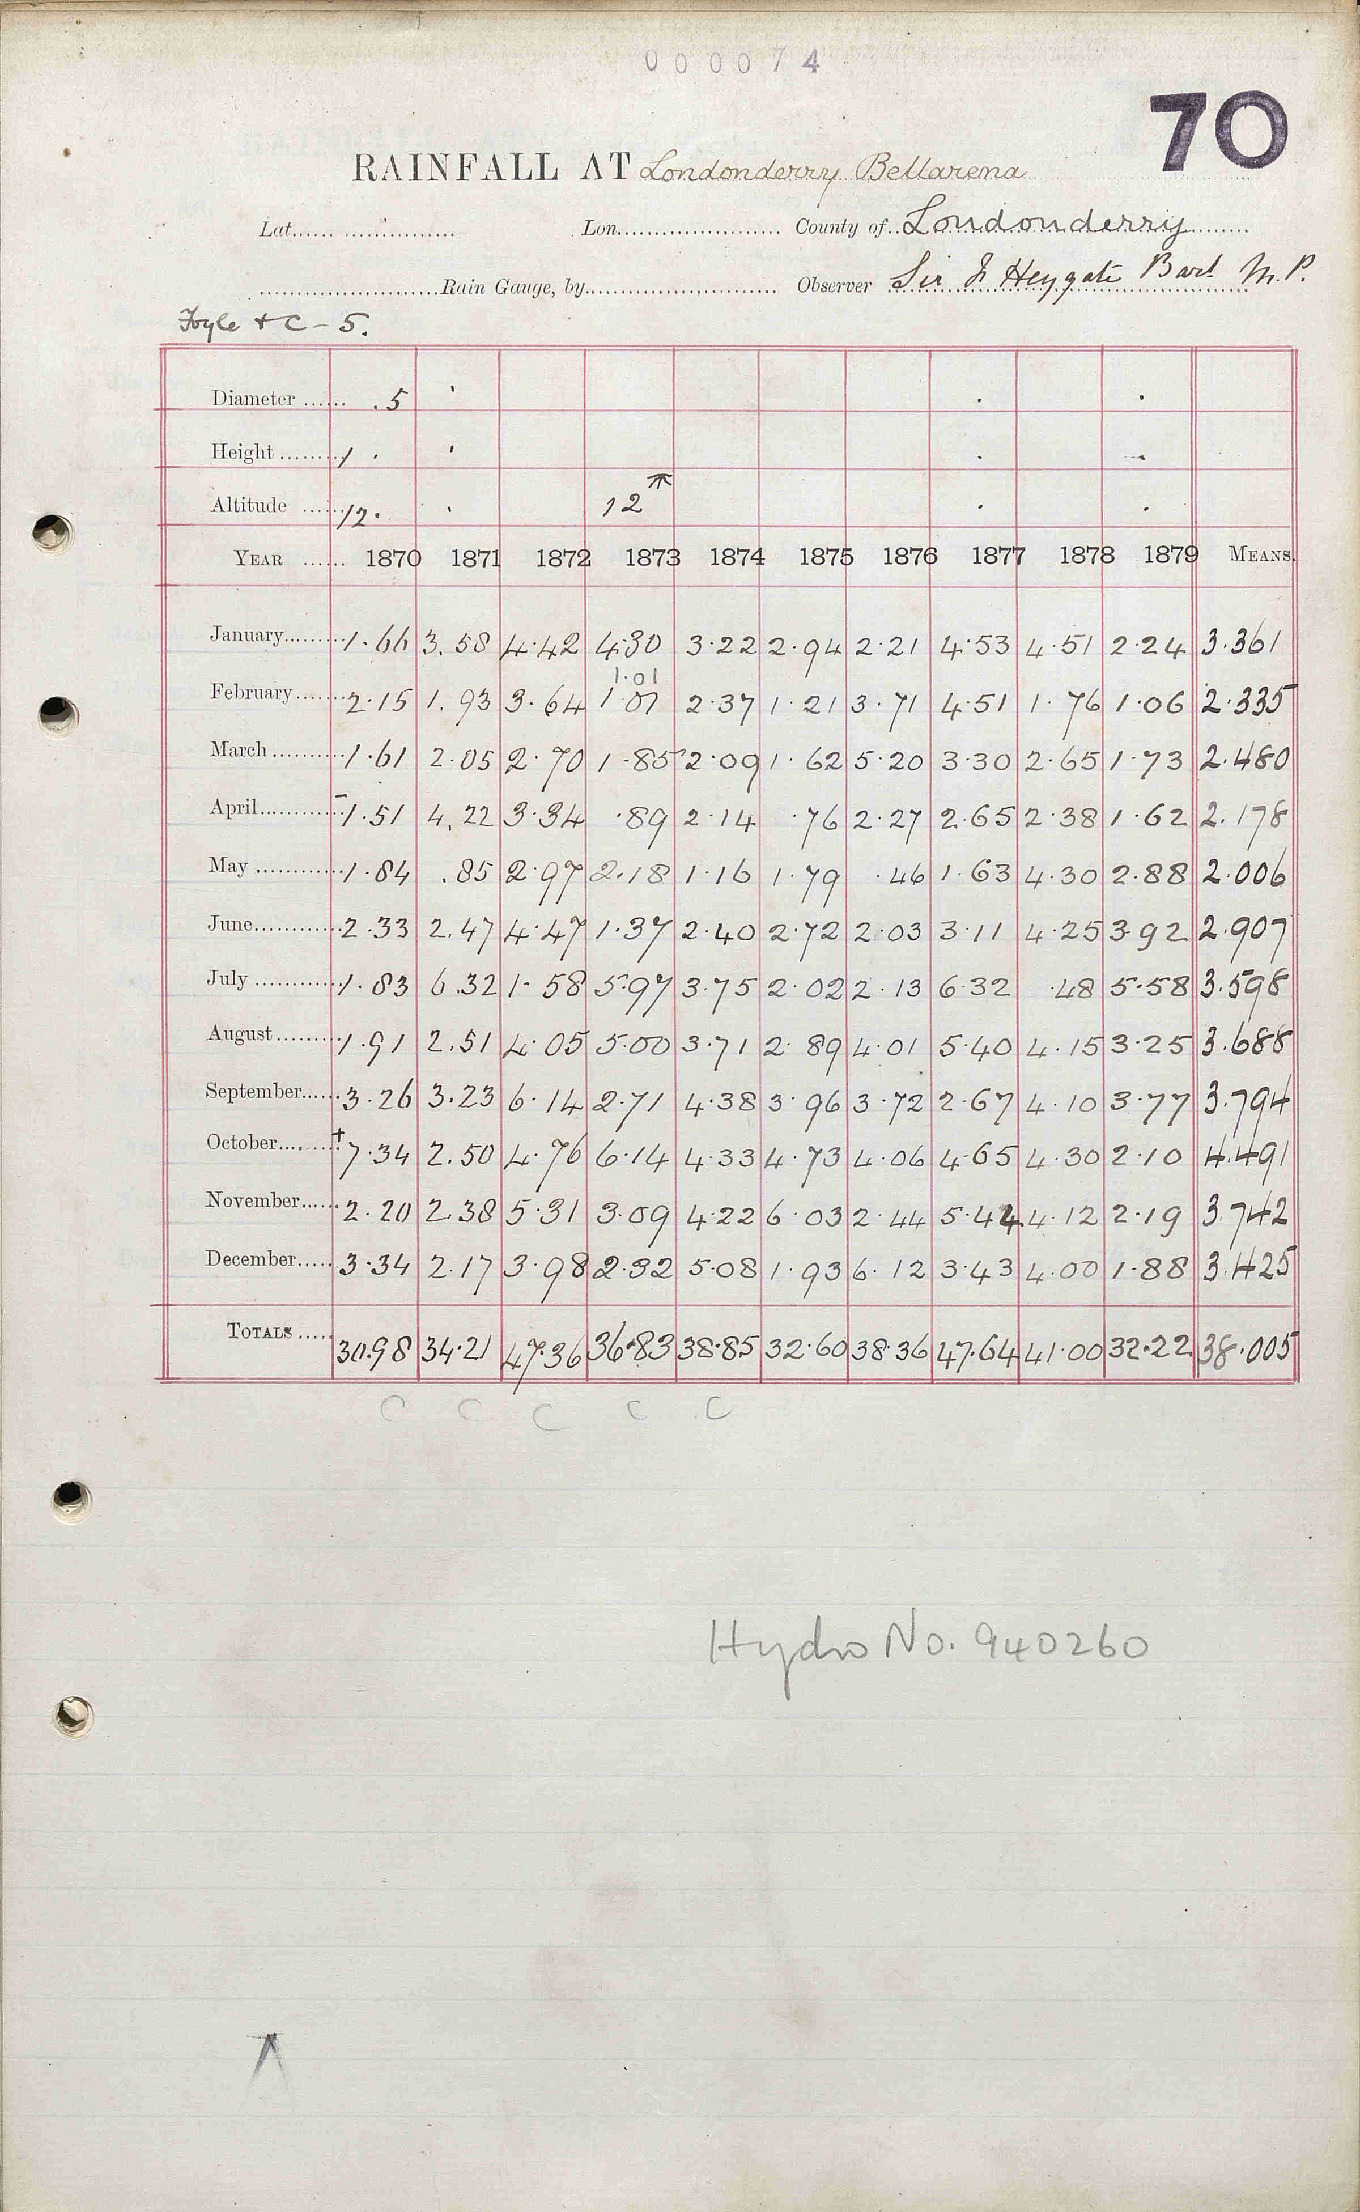 000074
70
RAINFALL AT Londonderry Bellarena
Lat. Lon. County of Londonderry
Rain Gauge, by Observer Sir F Heygate Bart M.P.
Foyle & C - 5.
Diameter 5
Height 1
Altitude 12. 12
YEAR 1870 1871 1872 1873 1874 1875 1876 1877 1878 1879 MEANS.
January 1.66 3.58 4.42 4.30 3.22 2.94 2.21 4.53 4.51 2.24 3.361
1.01
February 2.15 1.93 3.64 1.01 2.37 1.21 3.71 4.51 1.76 1.06 2.335
March 1.61 2.05 2.70 1.85 2.09 1.62 5.20 3.30 2.65 1.73 2.480
April 1.51 4.22 3.34 .89 2.14 .76 2.27 2.65 2.38 1.62 2.178
May 1.84 .85 2.97 2.18 1.16 1.79 .46 1.63 4.30 2.88 2.006
June 2.33 2.47 4.47 1.37 2.40 2.72 2.03 3.11 4.25 3.92 2.907
July 1.83 6.32 1.58 5.97 3.75 2.02 2.13 6.32 .48 5.58 3.598
August 1.91 2.51 4.05 5.00 3.71 2.89 4.01 5.40 4.15 3.25 3.688
September 3.26 3.23 6.14 2.71 4.38 3.96 3.72 2.67 4.10 3.77 3.794
October 7.34 2.50 4.76 6.14 4.33 4.73 4.06 4.65 4.30 2.10 4.491
November 2.20 2.38 5.31 3.09 4.22 6.03 2.44 5.44 4.12 2.19 3.742
December 3.34 2.17 3.98 2.32 5.08 1.93 6.12 3.43 4.00 1.88 3.425
TOTALS 30.98 34.21 47.36 36.83 38.85 32.60 38.36 47.64 41.00 32.22 38.005
C C C C C
Hydro No. 940260